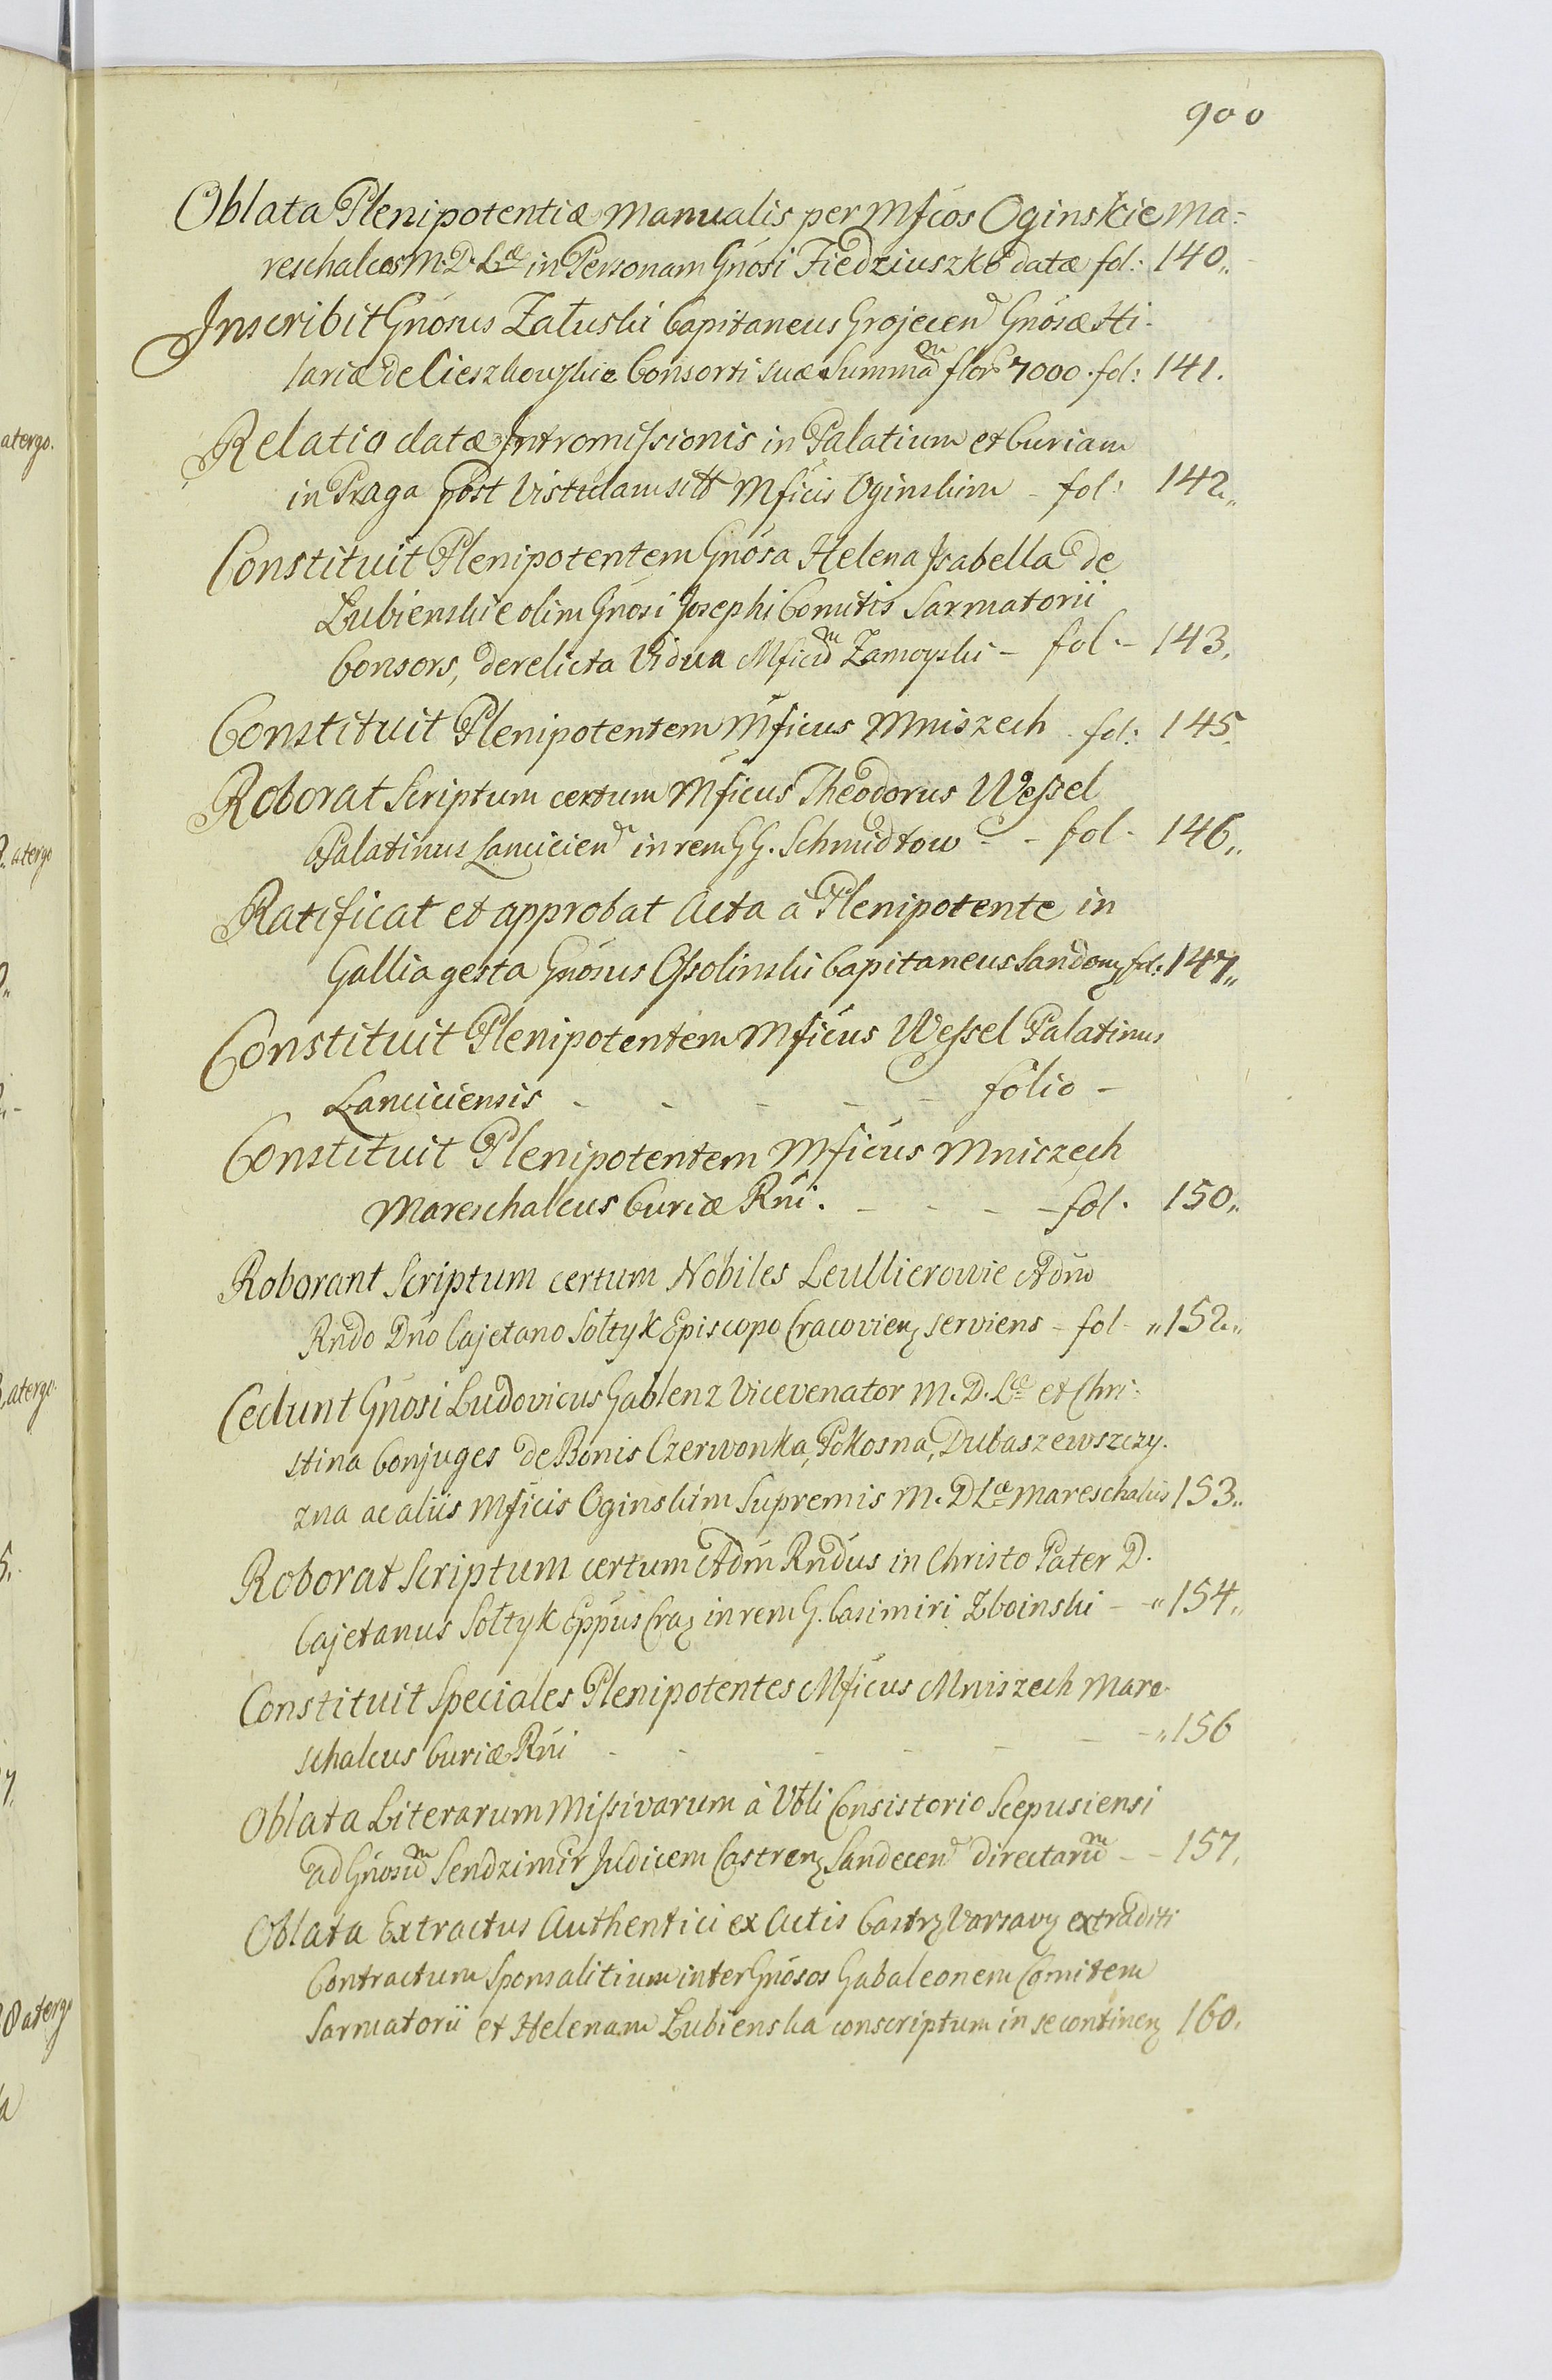 900
Oblata Plenipotentiæ Manualis per Mficos Oginskie Ma=
reschalcos M. D. Læ in Personam Gnosi Fiedziuszko datæ fol: 140,,
Inscribit Gnosus Załuski Capitaneus Grojecen Gnosæ Hi-
lariæ de Cieszkowskie Consorti suæ Summam flor 7000. fol: 141.
Relatio datæ Intromissionis in Palatium et Curiam
in Praga post Vistulam sitt Mficis Oginskim - fol: 142,,
Constituit Plenipotentem Gnosa Helena Isabella de
Łubienskie olim Gnosi Josephi Comitis Sarmatorii
Consors, derelicta Vidua Mficum Zamoyski - fol - 143.
Constituit Plenipotentem Mficus Mniszech fol: 145.
Roborat Scriptum certum Mficus Theodorus Wessel
Palatinus Lancicien in rem GG. Schmidtow - - fol - 146,,
Ratificat et approbat Acta à Plenipotente in
Gallia gesta Gnosus Ossolinski Capitaneus Sandomz fol: 147,,
Constituit Plenipotentem Mficus Wessel Palatinus
Lanciciensis - - - - - folio -
Constituit Plenipotentem Mficus Mniszech
Mareschalcus Curiæ Rni. - - - - fol. 150,,
Roborant Scriptum certum Nobiles Leullierowie Admo
Rndo Dno Cajetano Sołtyk Episcopo Cracovienz serviens - fol - ,,152,,
Cedunt Gnosi Ludovicus Gablenz Vicevenator M. D. Læ et Chri-
stina Conjuges de Bonis Czerwonka, Pokosna, Dubaszewszczy-
zna ac aliis Mficis Oginskim Supremis M. D Læ Mareschalcis 153,,
Roborat Scriptum certum Adm Rndus in Christo Pater D.
Cajetanus Sołtyk Eppus Craz in rem G. Casimiri Zboinski - - ,,154,,
Constituit Speciales Plenipotentes Mficus Mniszech Mare-
schalcus Curiæ Rni - - - - - - - ,,156
Oblata Literarum Missivarum à Vbli Consistorio Scepusiensi
ad Gnosum Sendzimir Judicem Castrenz Sandecen directarum - - 157.
Oblata Extractus Authentici ex Actis Castrz Varsavz extraditi
Contractum Sponsalitium inter Gnosos Gabaleonem Comitem
Sarmatorii et Helenam Łubienska conscriptum in se continenz 160.
atergo.
atergo
atergo.
8 atergo